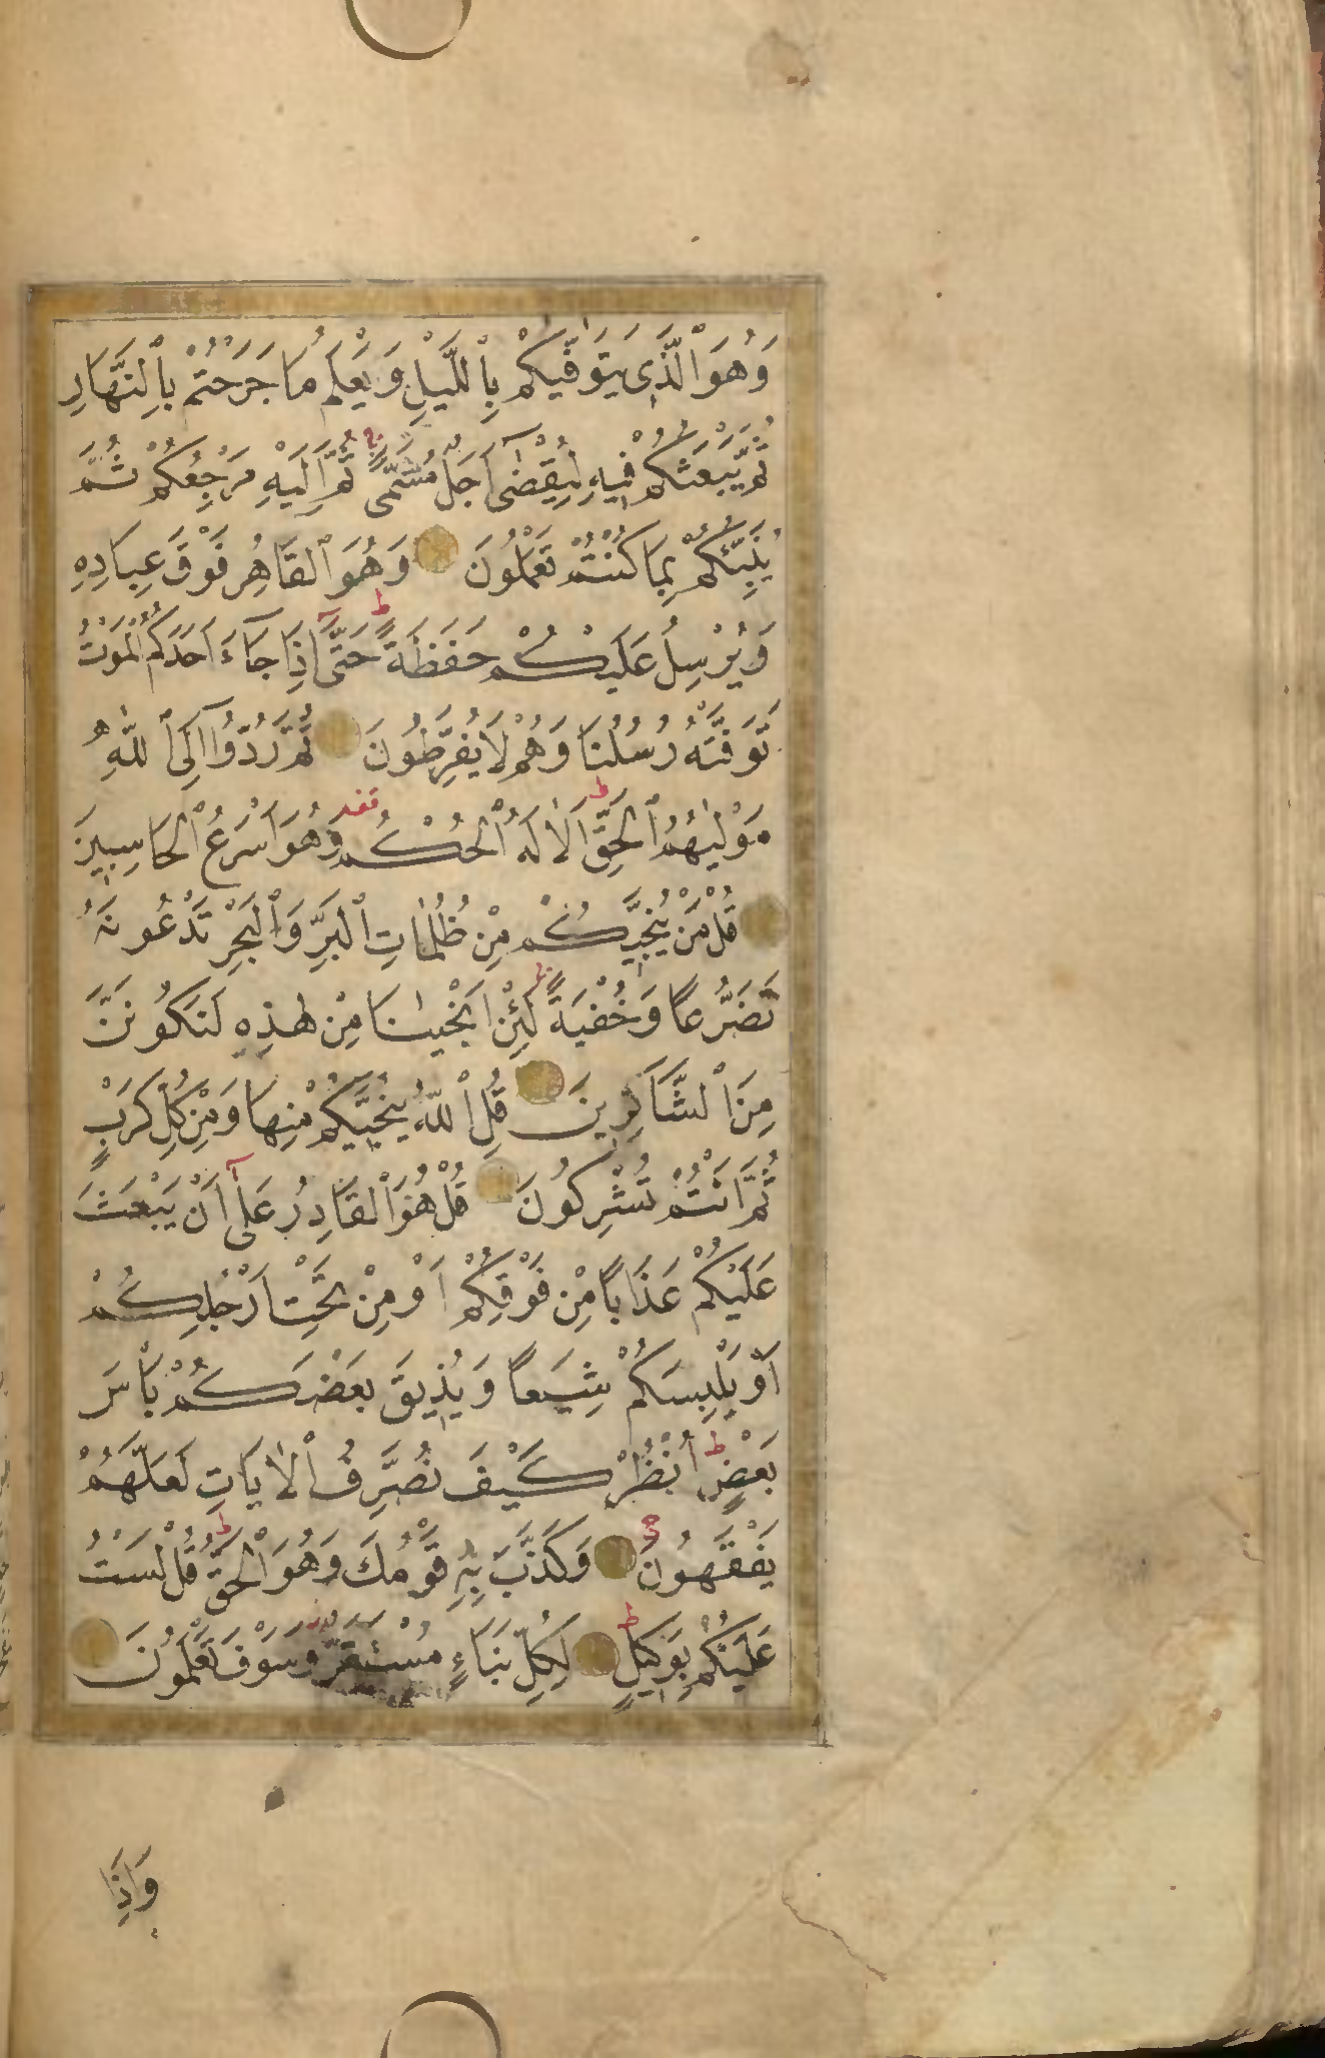 وَهُوَ ٱلَّذِى يَتَوَفّٰيكُمْ بِٱلَّيْلِ وَيَعْلَمُ مَا جَرَحْتُمْ بِٱلنَّهَارِ
ثُمَّ يَبْعَثُكُمْ فِيهِ لِيُقْضٰٓى اَجَلٌ مُسَمًّى ثُمَّ اِلَيْهِ مَرْجِعُكُمْ ثُمَّ
يُنَبِّئُكُمْ بِمَا كُنْتُمْ تَعْمَلُونَ وَهُوَ ٱلقَاهِرُ فَوْقَ عِبَادِهِ
وَيُرْسِلُ عَلَيْكُمْ حَفَظَةً ط حَتّٰٓى اِذَا جَآءَ اَحَدَكُمُ ٱلْمَوْتُ
تَوَفَّتْهُ رُسُلُنَا وَهُمْ لَا يُفَرِّطُونَ ثُمَّ رُدُّوٓا اِلَى ٱللّٰهِ
مَوْلٰيهُمُ ٱلْحَقِّ ط اَلَا لَهُ ٱلْحُكْمُ قف وَهُوَ اَسْرَعُ ٱلْحَاسِبِينَ
قُلْ مَنْ يُنَجِّيكُمْ مِنْ ظُلُمَاتِ ٱلْبَرِّ وَٱلْبَحْرِ تَدْعُونَهُ
تَضَرُّعًا وَخُفْيَةً ط لَئِنْ اَنْجَيْنَا مِنْ هٰذِهِ لَنَكُونَنَّ
مِنَ ٱلشَّاكِرِينَ قُلِ ٱللّٰهُ يُنَجِّيكُمْ مِنْهَا وَمِنْ كُلِّ كَرْبٍ
ثُمَّ اَنْتُمْ تُشْرِكُونَ قُلْ هُوَ ٱلْقَادِرُ عَلٰٓى اَنْ يَبْعَثَ
عَلَيْكُمْ عَذَابًا مِنْ فَوْقِكُمْ اَوْ مِنْ تَحْتِ اَرْجُلِكُمْ
اَوْ يَلْبِسَكُمْ شِيَعًا وَيُذِيقَ بَعْضَكُمْ بَأْسَ
بَعْضٍ ط اُنْظُرْ كَيْفَ نُصَرِّفُ ٱلْاٰيَاتِ لَعَلَّهُمْ
يَفْقَهُونَ وَكَذَّبَ بِهِ قَوْمُكَ وَهُوَ ٱلْحَقُّ ط قُلْ لَسْتُ
عَلَيْكُمْ بِوَكِيلٍ ط لِكُلِّ نَبَاءٍ مُسْتَقَرٌّ وَسَوْفَ تَعْلَمُونَ
وَاِذَا